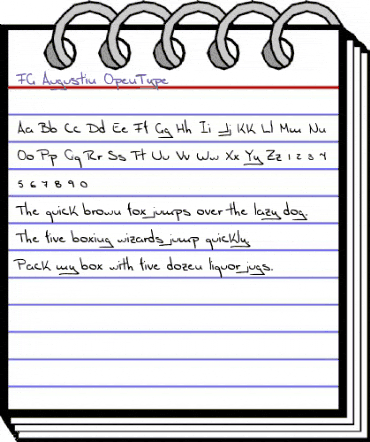 FG Augustin OpenType
Aa Bb Cc Dd Ee Ff Gg Hh Ii Jj KK Ll Mm Nn
Oo Pp Qq Rr Ss Tt Uu Vv Ww Xx Yy Zz 1 2 3 4
5 6 7 8 9 0
The quick brown fox jumps over the lazy dog.
The five boxing wizards jump quickly
Pack my box with five dozen liquor jugs.